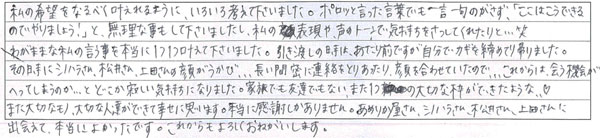 私の希望をなるべく叶えれるように、いろいろ考えて下さいました。ポロッと言った言葉でも一言一句のがさず、「ここはこうできる
のでやりましょう!」と、無理な事もして下さいましたし、私の表現や声のトーンで気持ちをさっしてくれたりと…笑
わがままな私の言う事を本当に1つ1つ叶えて下さいました。引き渡しの日は、あたり前ですが自分でカギを締めて帰りました。
その時にシノハラさん、松井さん、上田さんの顔がうかび…長い間密に連絡をとりあったり、顔を合わせていたので…これからは、会う機会が
へってしまうのか…とどこか寂しい気持ちになりました。家族でも友達でもない、また1つの大切な枠ができたような、♡
また大切な、大切な人ができて幸せに思います。本当に感謝しかありません。あめりか屋さん、シノハラさん、松井さん、上田さんに
出会えて、本当によかったです。これからもよろしくおねがいします。